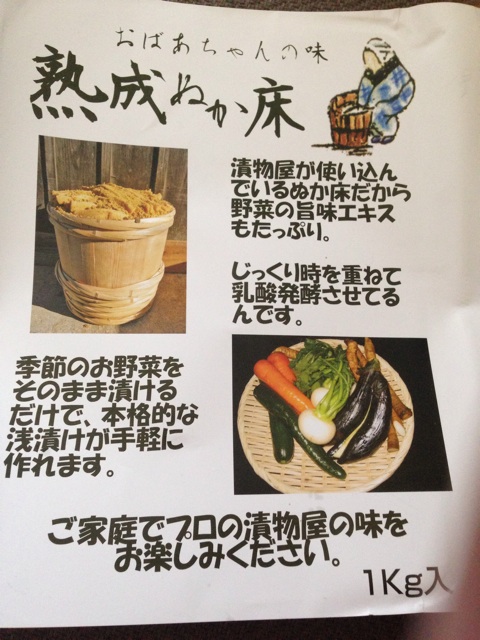 おばあちゃんの味
熟成ぬか床
漬物屋が使い込ん
でいるぬか床だから
野菜の旨味エキス
もたっぷり。
じっくり時を重ねて
乳酸発酵させてる
んです。
季節のお野菜を
そのまま漬ける
だけで、本格的な
浅漬けが手軽に
作れます。
ご家庭でプロの漬物屋の味を
お楽しみください。
1Kg入